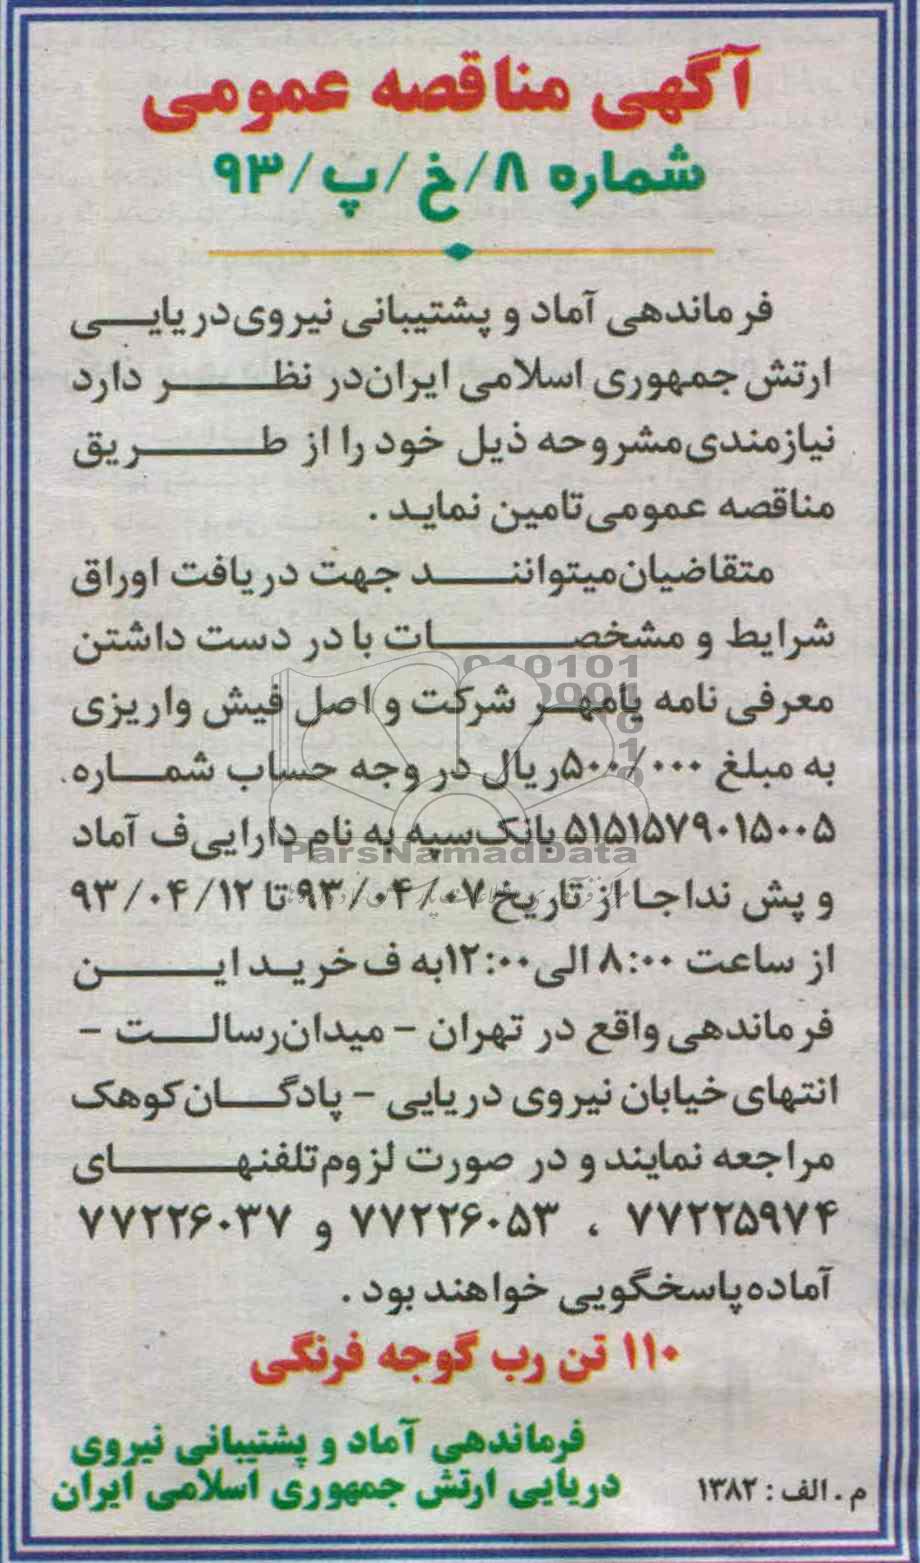 آگهی مناقصه عمومی
شماره ۸/خ/پ/۹۳
فرماندهی آماد و پشتیبانی نیروی دریایی
ارتش جمهوری اسلامی ایران در نظر دارد
نیازمندی مشروحه ذیل خود را از طریق
مناقصه عمومی تامین نماید .
متقاضیان میتوانند جهت دریافت اوراق
شرایط و مشخصات با در دست داشتن
معرفی نامه یا مهر شرکت و اصل فیش واریزی
به مبلغ ۵۰۰/۰۰۰ ریال در وجه حساب شماره
۵۱۵۱۵۷۹۰۱۵۰۰۵ بانک سپه به نام دارایی ف آماد
و پش نداجا از تاریخ ۹۳/۰۴/۰۷ تا ۹۳/۰۴/۱۲
از ساعت ۸:۰۰ الی ۱۲:۰۰ به ف خرید این
فرماندهی واقع در تهران - میدان رسالت -
انتهای خیابان نیروی دریایی - پادگان کوهک
مراجعه نمایند و در صورت لزوم تلفنهای
۷۷۲۲۵۹۷۴ ، ۷۷۲۲۶۰۵۳ و ۷۷۲۲۶۰۳۷
آماده پاسخگویی خواهند بود .
۱۱۰ تن رب گوجه فرنگی
فرماندهی آماد و پشتیبانی نیروی
دریایی ارتش جمهوری اسلامی ایران
م . الف : ۱۳۸۲
ParsNamadData